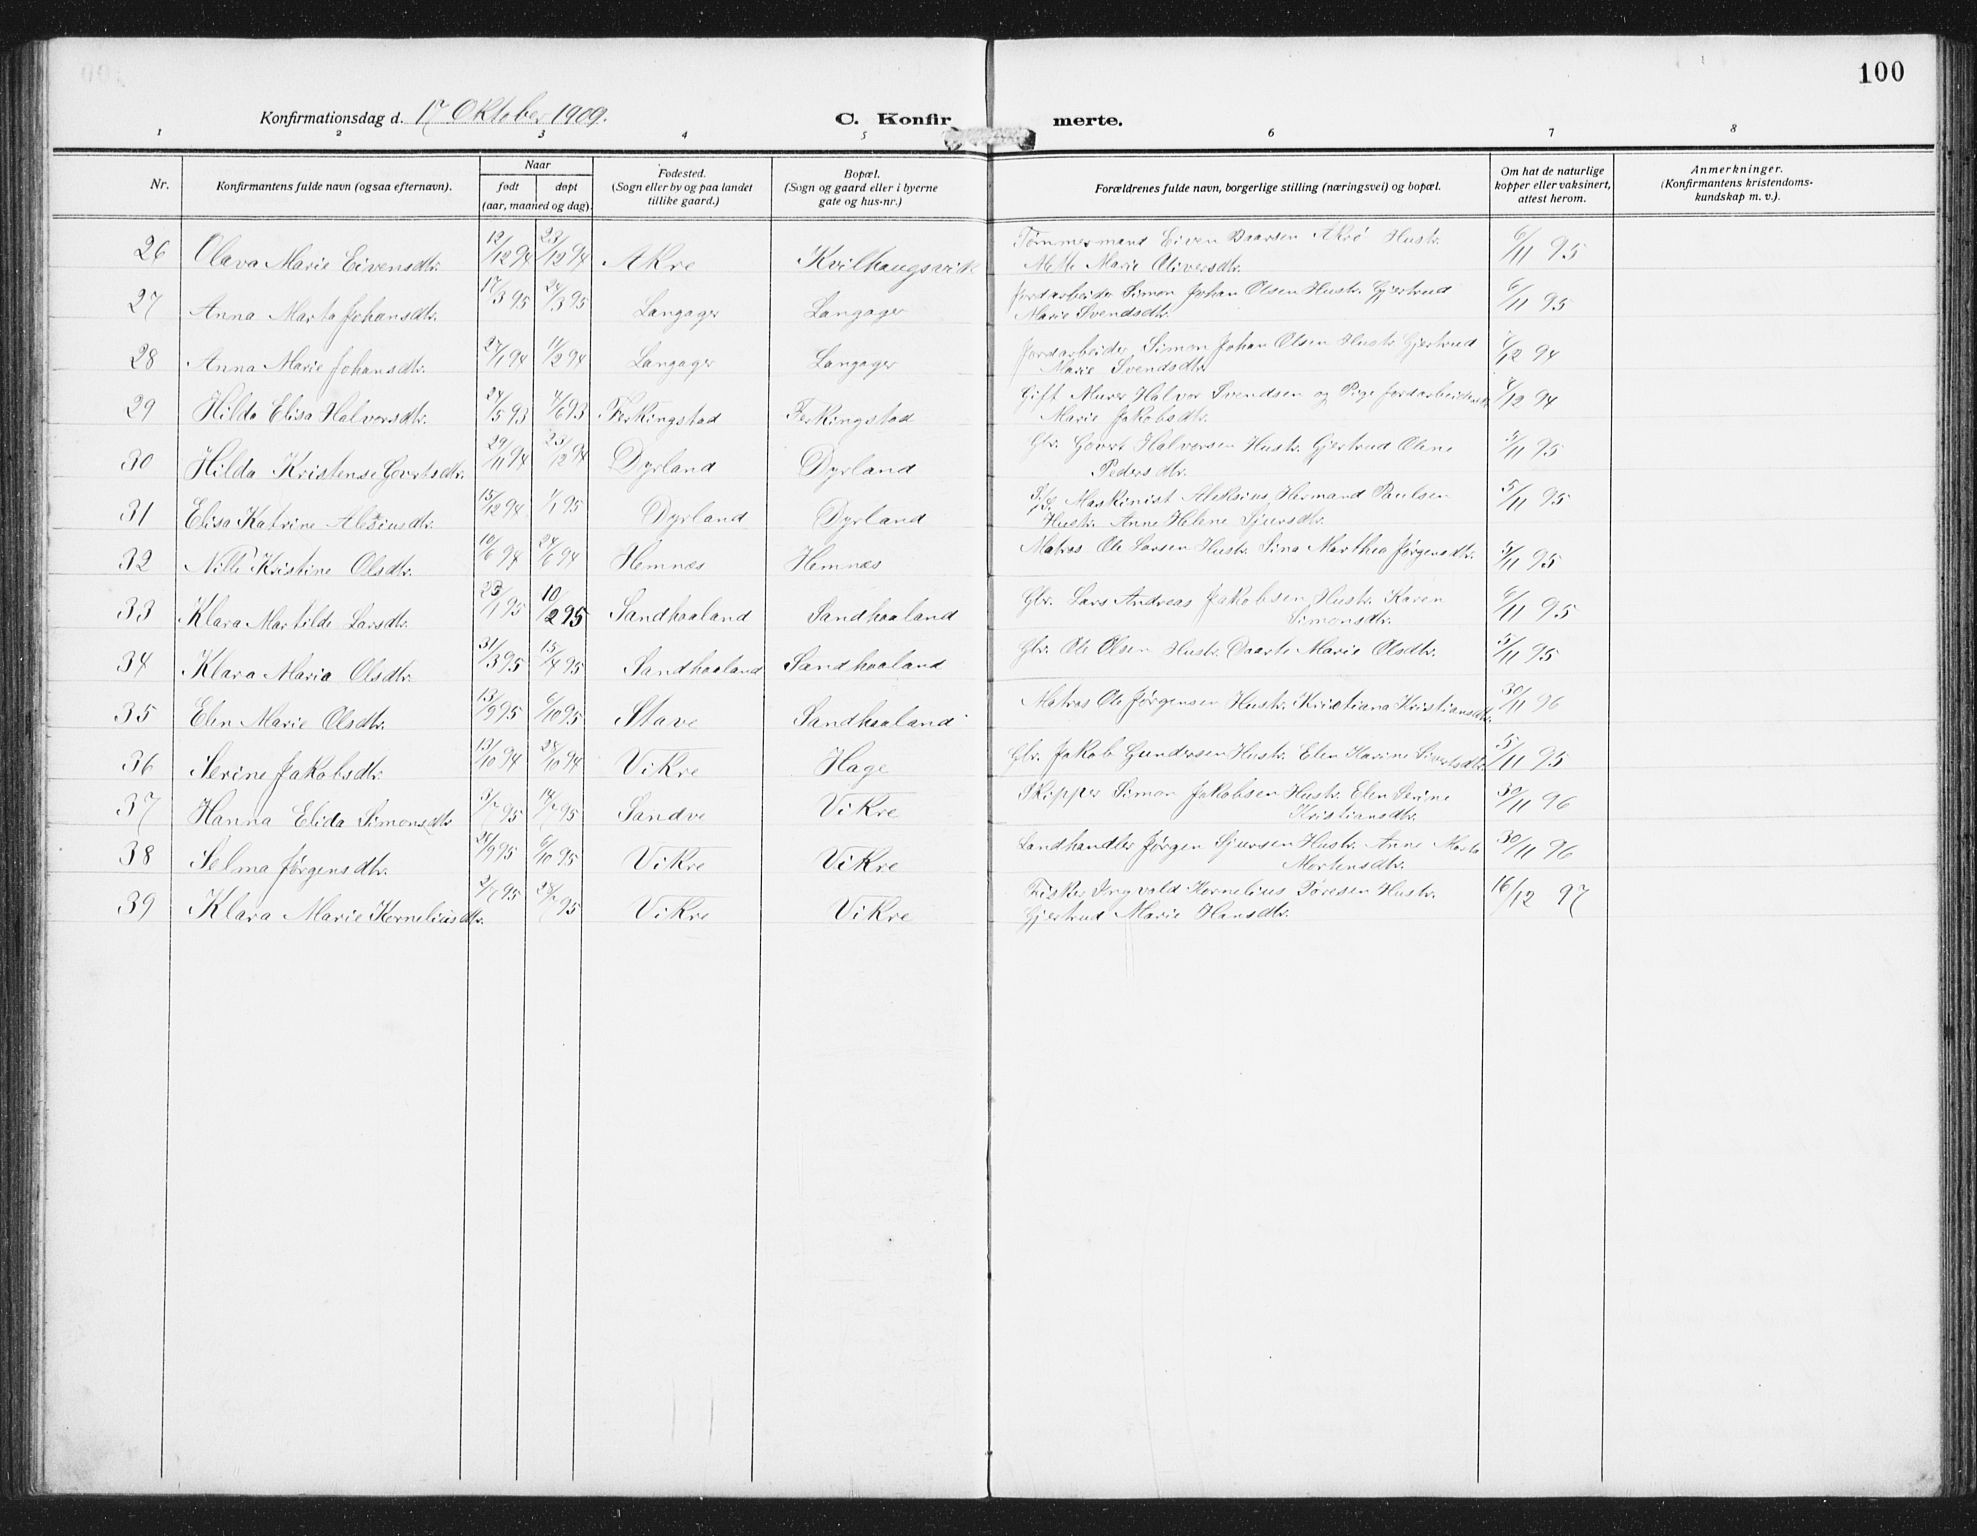 100
Konfirmationsdag d. 17 Oktober 1909.
C. Konfirmerte.
1 2 3 4 5 6 7 8
Nr.
Konfirmantens fulde navn (ogsaa efternavn).
Naar
født døpt
(aar, maaned og dag).
Fødested.
(Sogn eller by og paa landet
tillike gaard.)
Bopæl.
(Sogn og gaard eller i byerne
gate og hus-nr.)
Forældrenes fulde navn, borgerlige stilling (næringsvei) og bopæl.
Om hat de naturlige
kopper eller vaksinert,
attest herom.
Anmerkninger.
(Konfirmantens kristendoms-
kundskap m. v.).
26 Olava Marie Eivensdtr. 12/12 94 23/12 94 Akre Kvilhaugsvik Tømmermand Eiven Baarsen Akre Hustr. 6/11 95
Mette Marie Oliversdtr.
27 Anna Marta Johansdtr. 17/3 95 24/3 95 Langager Langager Jordarbeider Simon Johan Olsen Hustr. Gjertrud 6/11 95
Marie Svendsdtr.
28 Anna Marie Johansdtr. 27/1 94 11/2 94 Langager Langager Jordarbeider Simon Johan Olsen Hustr. Gjertrud /12 94
Marie Svendsdtr.
29 Hilda Elisa Halvorsdtr. 24/5 93 4/6 93 Ferkingstad Ferkingstad Gift Murer Halvor Svendsen og Pige Jordarbeiderske /12 94
Marie Jakobsdtr.
30 Hilda Kristense Govertsdtr. 29/11 94 25/12 94 Dyrland Dyrland Gbr. Govert Halvorsen Hustr. Gjertrud Oline 5/11 95
Pedersdtr.
31 Elisa Katrine Aleksiusdtr. 15/12 94 1/1 95 Dyrland Dyrland Maskinist Aleksius Hermand Paulsen 5/11 95
Hustr. Anne Helene Sjursdtr.
32 Nille Kristine Olsdtr. 10/6 94 24/6 94 Hemnes Hemnes Matros Ole Larsen Hustr. Sina Marthea Jørgensdtr. 5/11 95
33 Klara Martilde Larsdtr. 23/1 95 10/2 95 Sandhaaland Sandhaaland Gbr. Lars Andreas Jakobsen Hustr. Karen 6/11 95
Simonsdtr.
34 Klara Maria Olsdtr. 31/3 95 15/4 95 Sandhaaland Sandhaaland Gbr. Ole Olsen Hustr. Daarte Marie Olsdtr. 5/11 95
35 Elen Marie Olsdtr. 13/9 95 6/10 95 Stave Sandhaaland Matros Ole Jørgensen Hustr. Kristiana Kristiansdtr. 30/11 96
36 Serine Jakobsdtr. 13/10 94 28/10 94 Vikre Hage Gbr. Jakob Gundersen Hustr. Elen Karine Sivertsdtr. 5/11 95
37 Hanna Elida Simonsdtr. 3/7 95 14/7 95 Sandve Vikre Skipper Simon Jakobsen Hustr. Elen Serine 30/11 96
Kristiansdtr.
38 Selma Jørgensdtr. 25/9 95 6/10 95 Vikre Vikre Landhandler Jørgen Sjursen Hustr. Anne Marta 30/11 96
Mortensdtr.
39 Klara Marie Kornelius dtr. 2/7 95 28/7 95 Vikre Vikre Fisker Ingvald Kornelius Tøresen Hustr. 16/12 97
Gjertrud Marie Hansdtr.